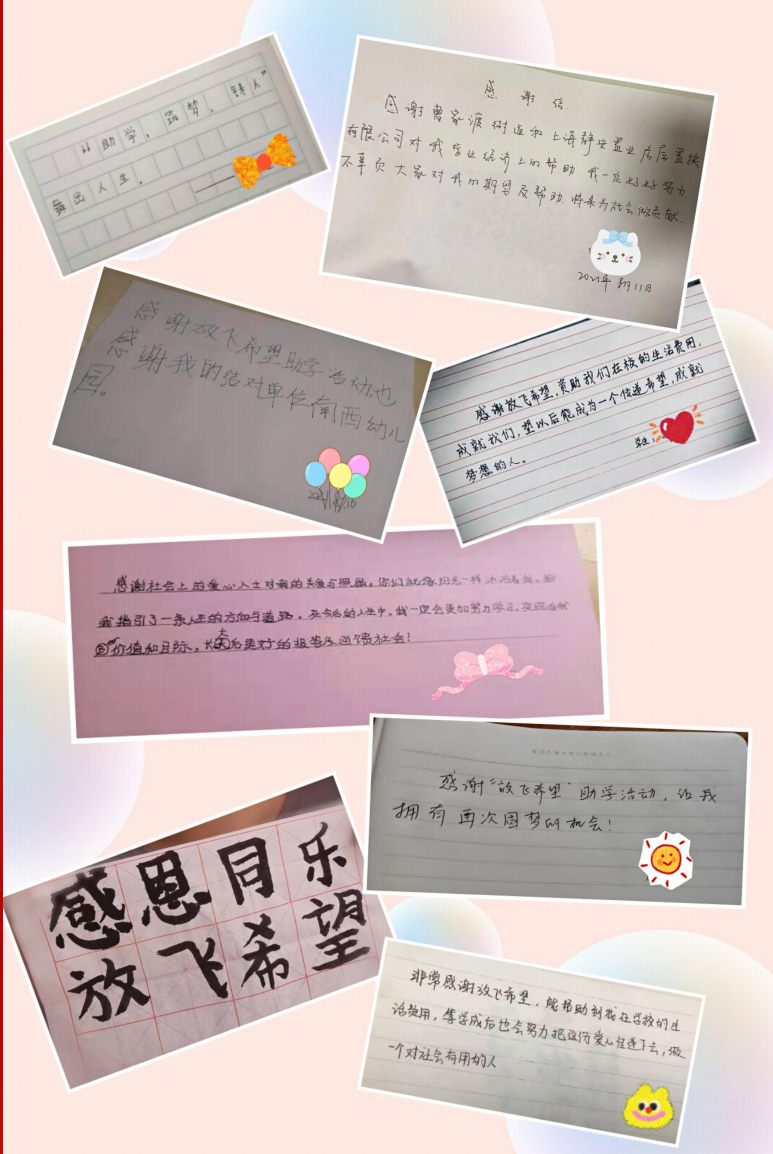 “助学，筑梦，铸人”
舞出人生。
感谢信
感谢曹家渡街道和上海静安置业房屋置换
有限公司对我学业经济上的帮助.我一定好好努力
不辜负大家对我的期望及帮助.将来为社会做贡献.
2021年8月11日
感谢放飞希望助学活动也
感谢我的结对单位南西幼儿
园。
感谢放飞希望，资助我们在校的生活费用，
成就我们，望以后能成为一个传递希望，成就
梦想的人。
感谢社会上的爱心人士对我的关爱与照顾。你们就像阳光一样沐浴着我，给
我指引了一条人生的方向与道路。在今后的人生中，我一定会更加努力学习，实现自我
价值和目标，长大后更好的报答及回馈社会！
感谢“放飞希望”助学活动，让我
拥有再次圆梦的机会！
感恩同乐
放飞希望
非常感谢放飞希望，能帮助到我在学校的生
活费用，等学成后也会努力把这份爱心传递下去，做
一个对社会有用的人